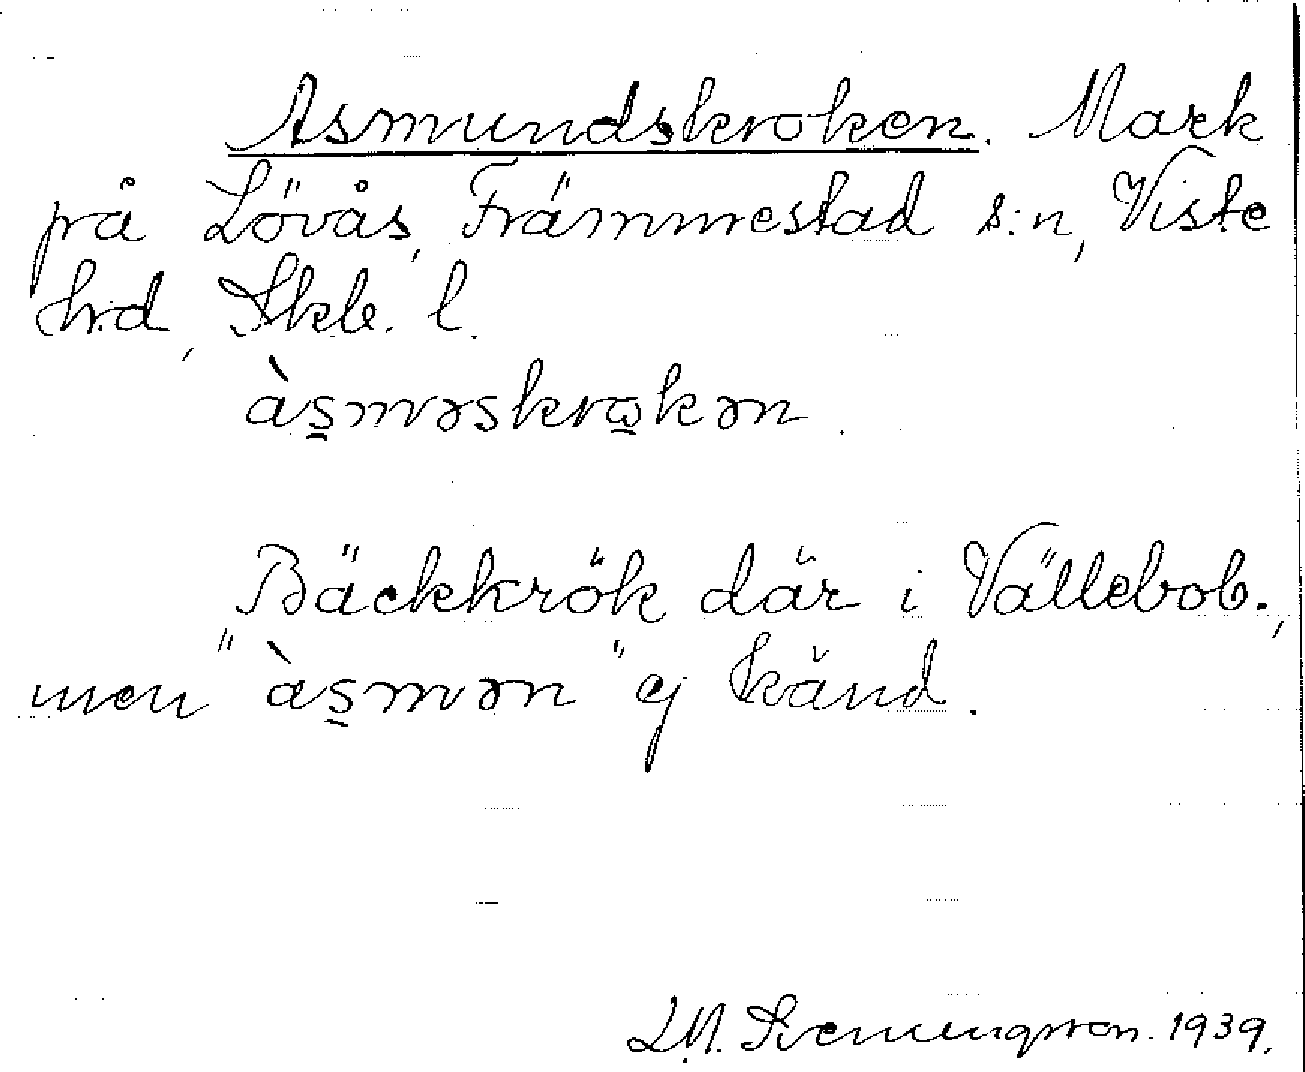 Asmundskroken. Mark
på Lövås, Främmestad s:n, Viste
hd, Skb. l.
às̱məskrω̱kən.
Bäckkrök där i Vällebob.,
men "às̱mən" ej känd.
L.M. Svenungsson. 1939.